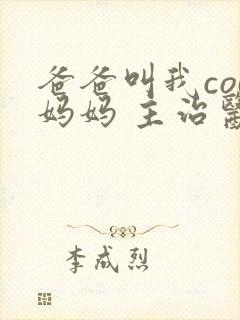 爸爸叫我co
妈妈 主治醫
李成烈